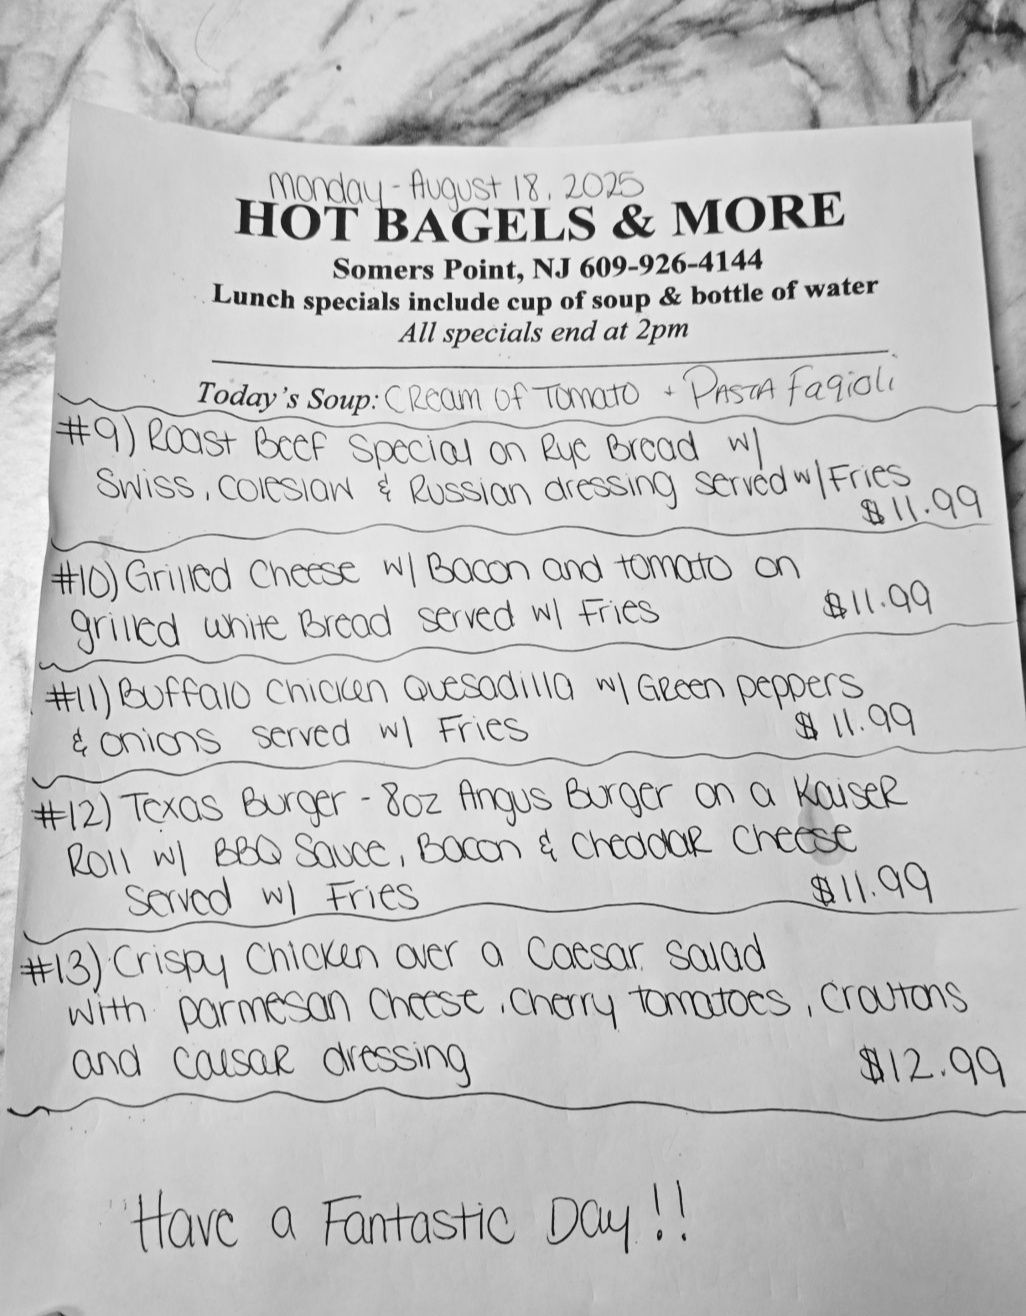 Monday - August 18, 2025
HOT BAGELS & MORE
Somers Point, NJ 609-926-4144
Lunch specials include cup of soup & bottle of water
All specials end at 2pm
Today's Soup: Cream of Tomato + Pasta Fagioli
#9) Roast Beef Special on Rye Bread w/
Swiss, coleslaw & Russian dressing served w/ Fries
$11.99
#10) Grilled Cheese w/ Bacon and tomato on
grilled white Bread served w/ Fries $11.99
#11) Buffalo Chicken Quesadilla w/ Green peppers
& onions served w/ Fries $11.99
#12) Texas Burger - 8oz Angus Burger on a Kaiser
Roll w/ BBQ Sauce, Bacon & Cheddar Cheese
Served w/ Fries $11.99
#13) Crispy Chicken over a Caesar Salad
with parmesan Cheese, Cherry tomatoes, croutons
and caesar dressing $12.99
Have a Fantastic Day!!